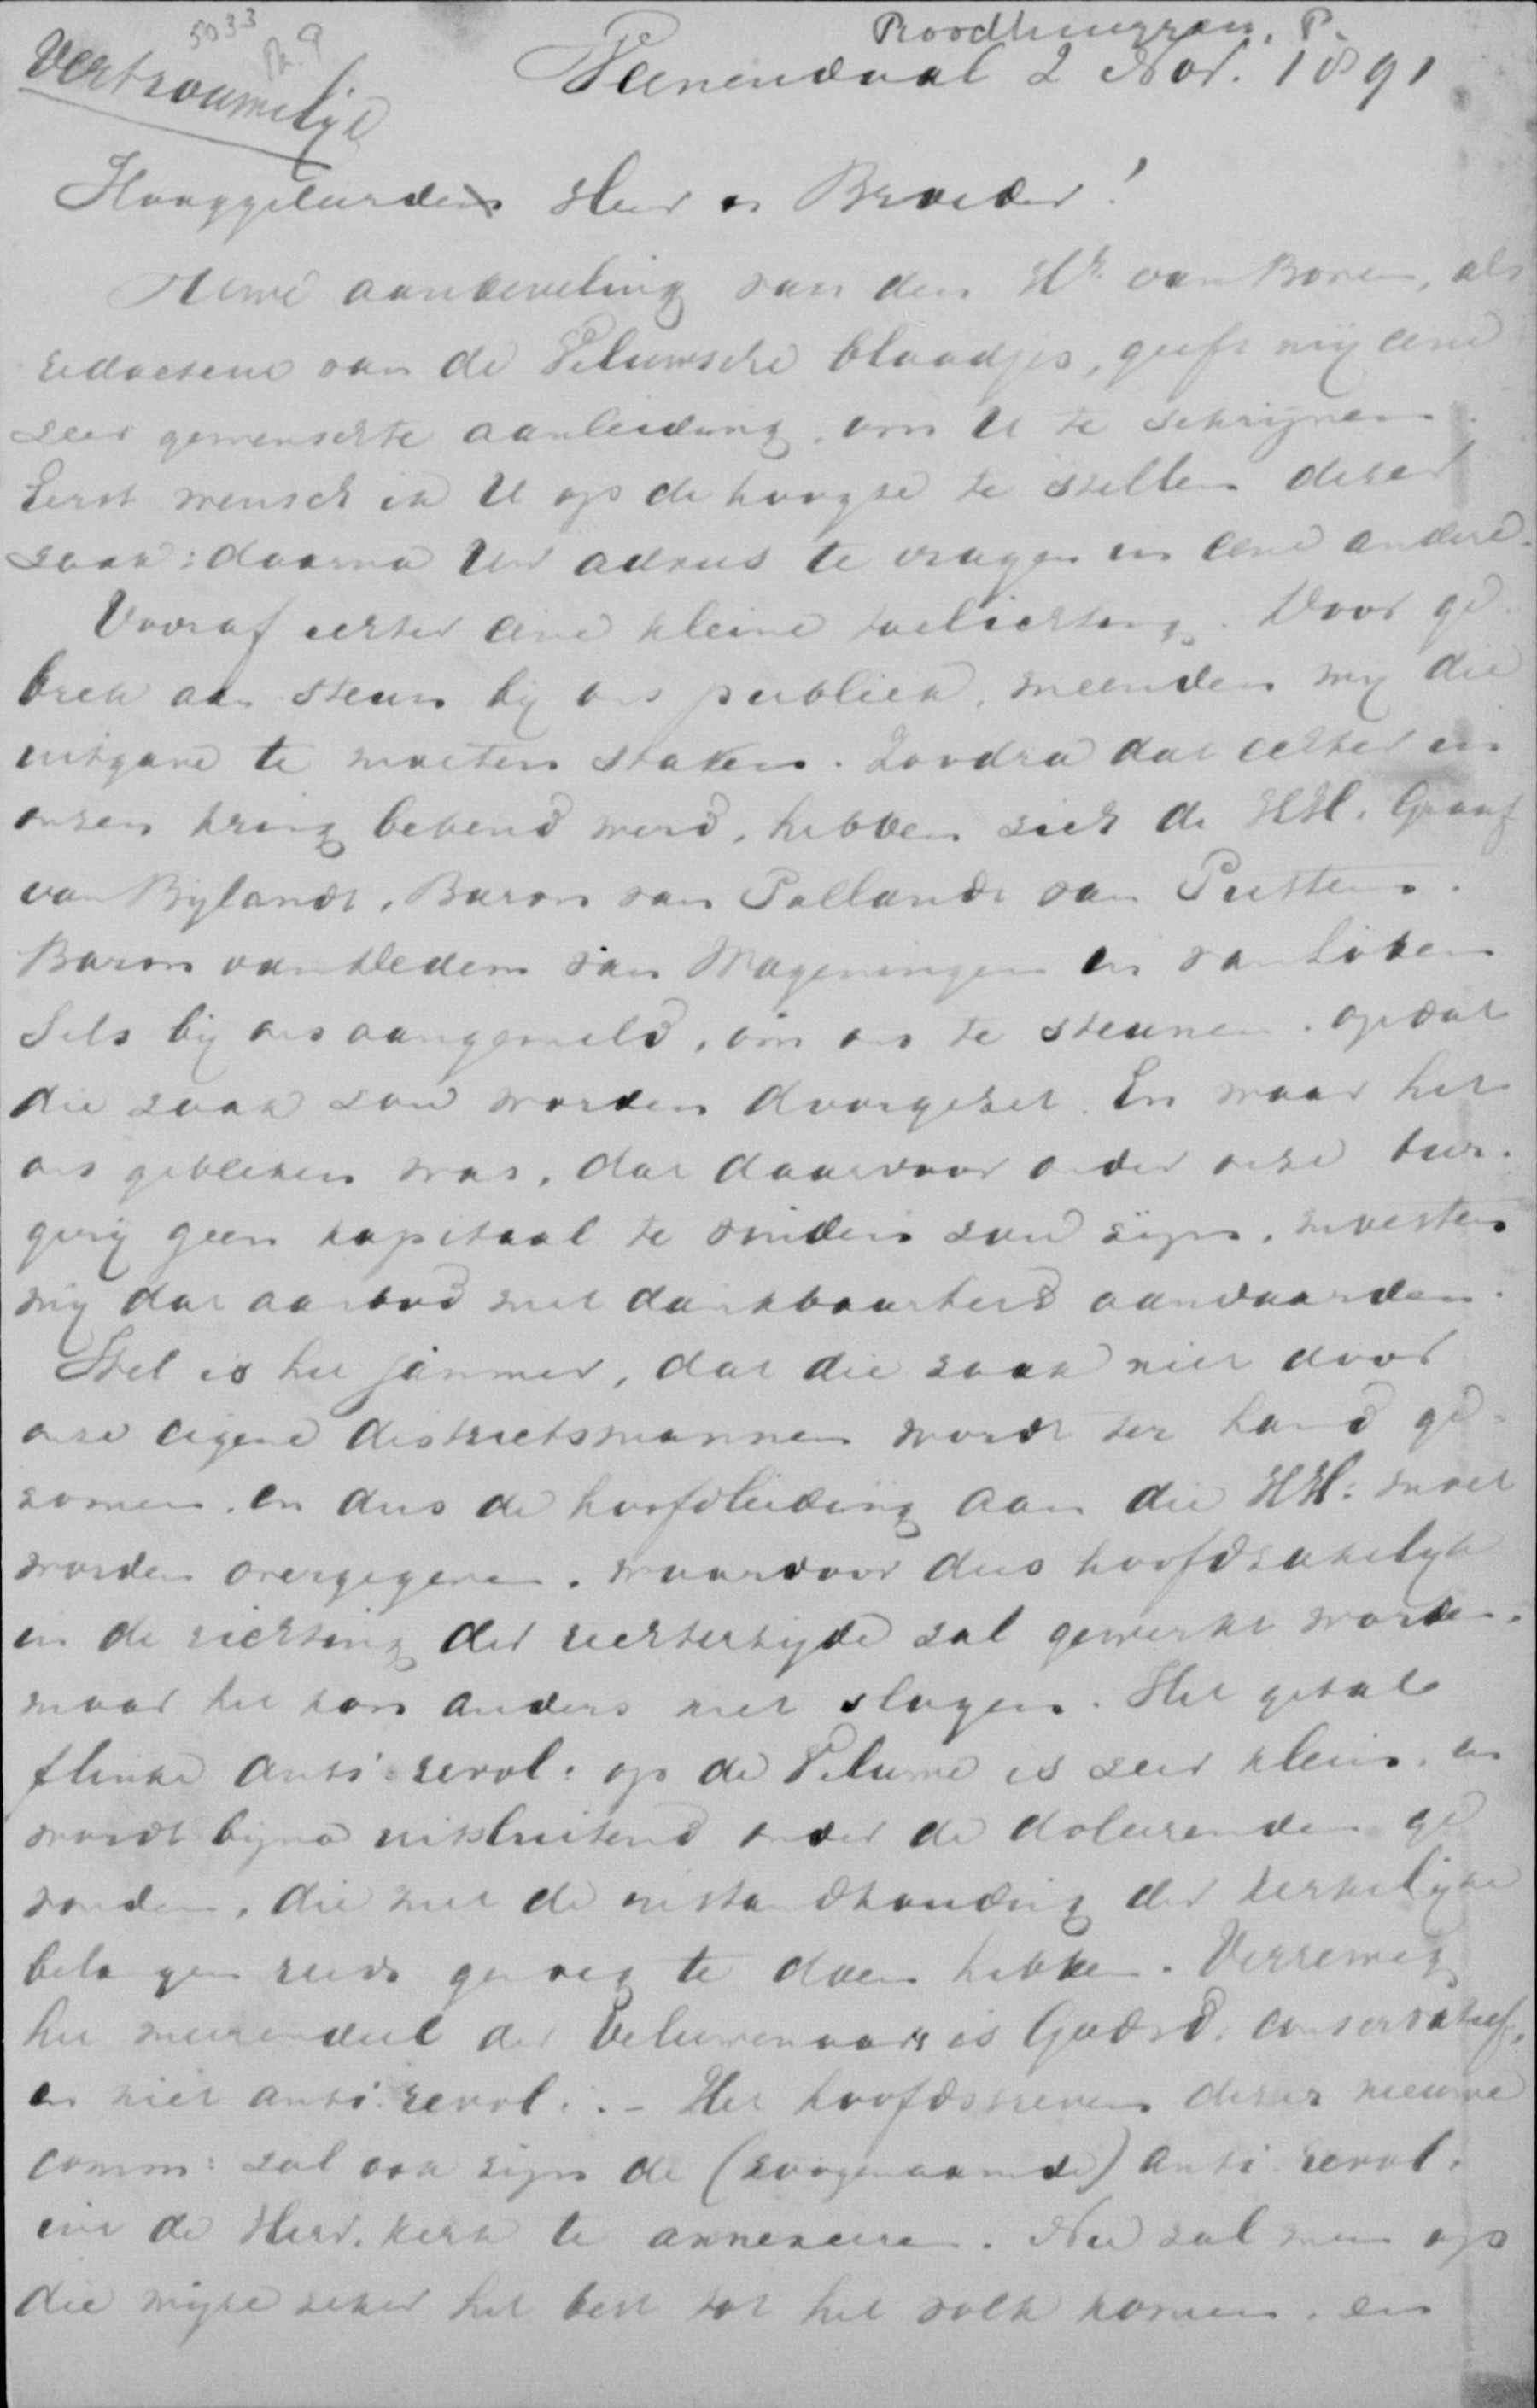 5033
Vertrouwelijk
Roodhuyzen, P.
Veenendaal 2 Nov. 1891
Hooggeleerde Heer en Broeder!
Uwe aanbeveling van den Hr. van Boven, als
redacteur van de Veluwsche blaadjes, geeft mij eene
zeer gewenschte aanleiding, om U te schrijven.
Eerst wensch ik U op de hoogte te stellen dezer
zaak: daarna Uw advies te vragen in eene andere.
Vooraf echter eene kleine toelichting. Door ge-
brek aan steun bij ons publiek, meenden wij die
uitgave te moeten staken. Zoodra dat echter in
onzen kring bekend werd, hebben zich de HH. Graaf
van Bylandt, Baron van Pallandt van Putten.
Baron van Hedem van Wageningen en van Löben
Sels bij ons aangemeld, om ons te steunen. opdat
die zaak zou worden doorgezet. En waar het
ons gebleken was, dat daarvoor onder onze bur-
gerij geen kapitaal te vinden zou zijn, moesten
wij dat aanbod met dankbaarheid aanvaarden.
Wel is het jammer, dat die zaak niet door
onze eigene districtsmannen wordt ter hand ge-
nomen. en dus de hoofdleiding aan die HH: moet
worden overgegeven. waardoor dus hoofdzakelijk
in de richting der rechterzijde zal gewerkt worden.
maar het kan anders niet slagen. Het getal
flinke anti-revol: op de Veluwe is zeer klein. en
wordt bijna uitsluitend onder de doleerenden ge
vonden, die met de instandhouding der kerkelijke
belangen reeds genoeg te doen hebben. Verreweg
het meerendeel der Veluwenaars is Godsd. conservatief,
en niet anti-revol:. - Het hoofdstreven dezer nieuwe
comm: zal ook zijn de (zoogenaamde) anti-revol.
in de Herv. kerk te annexeeren. Nu zal men op
die wijze zeker het best tot het volk komen. en